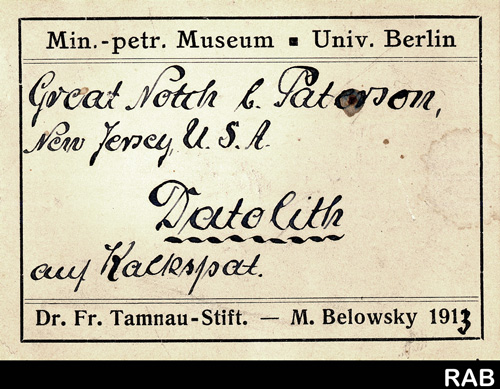 Min.-petr. Museum ▪ Univ. Berlin
Great Notch b. Paterson,
New Jersey, U. S. A.
Datolith
auf Kalkspat.
Dr. Fr. Tamnau-Stift. — M. Belowsky 1913
RAB